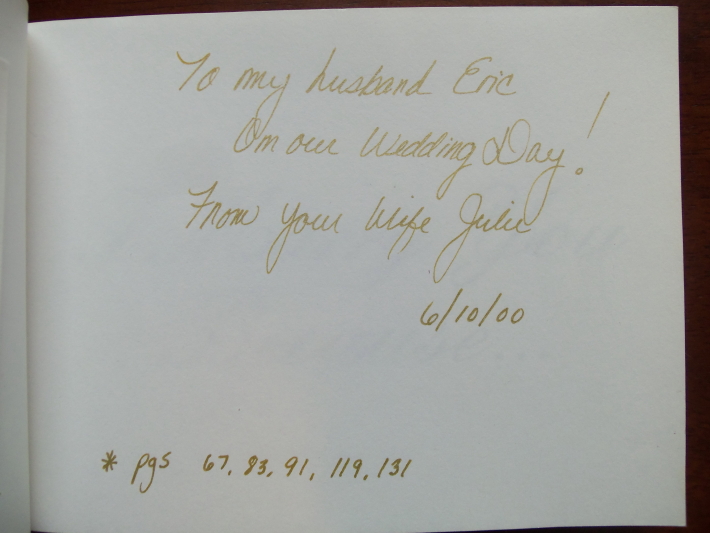 To my husband Eric
On our Wedding Day!
From your Wife Julie
6/10/00
* pgs 67, 83, 91, 119, 131